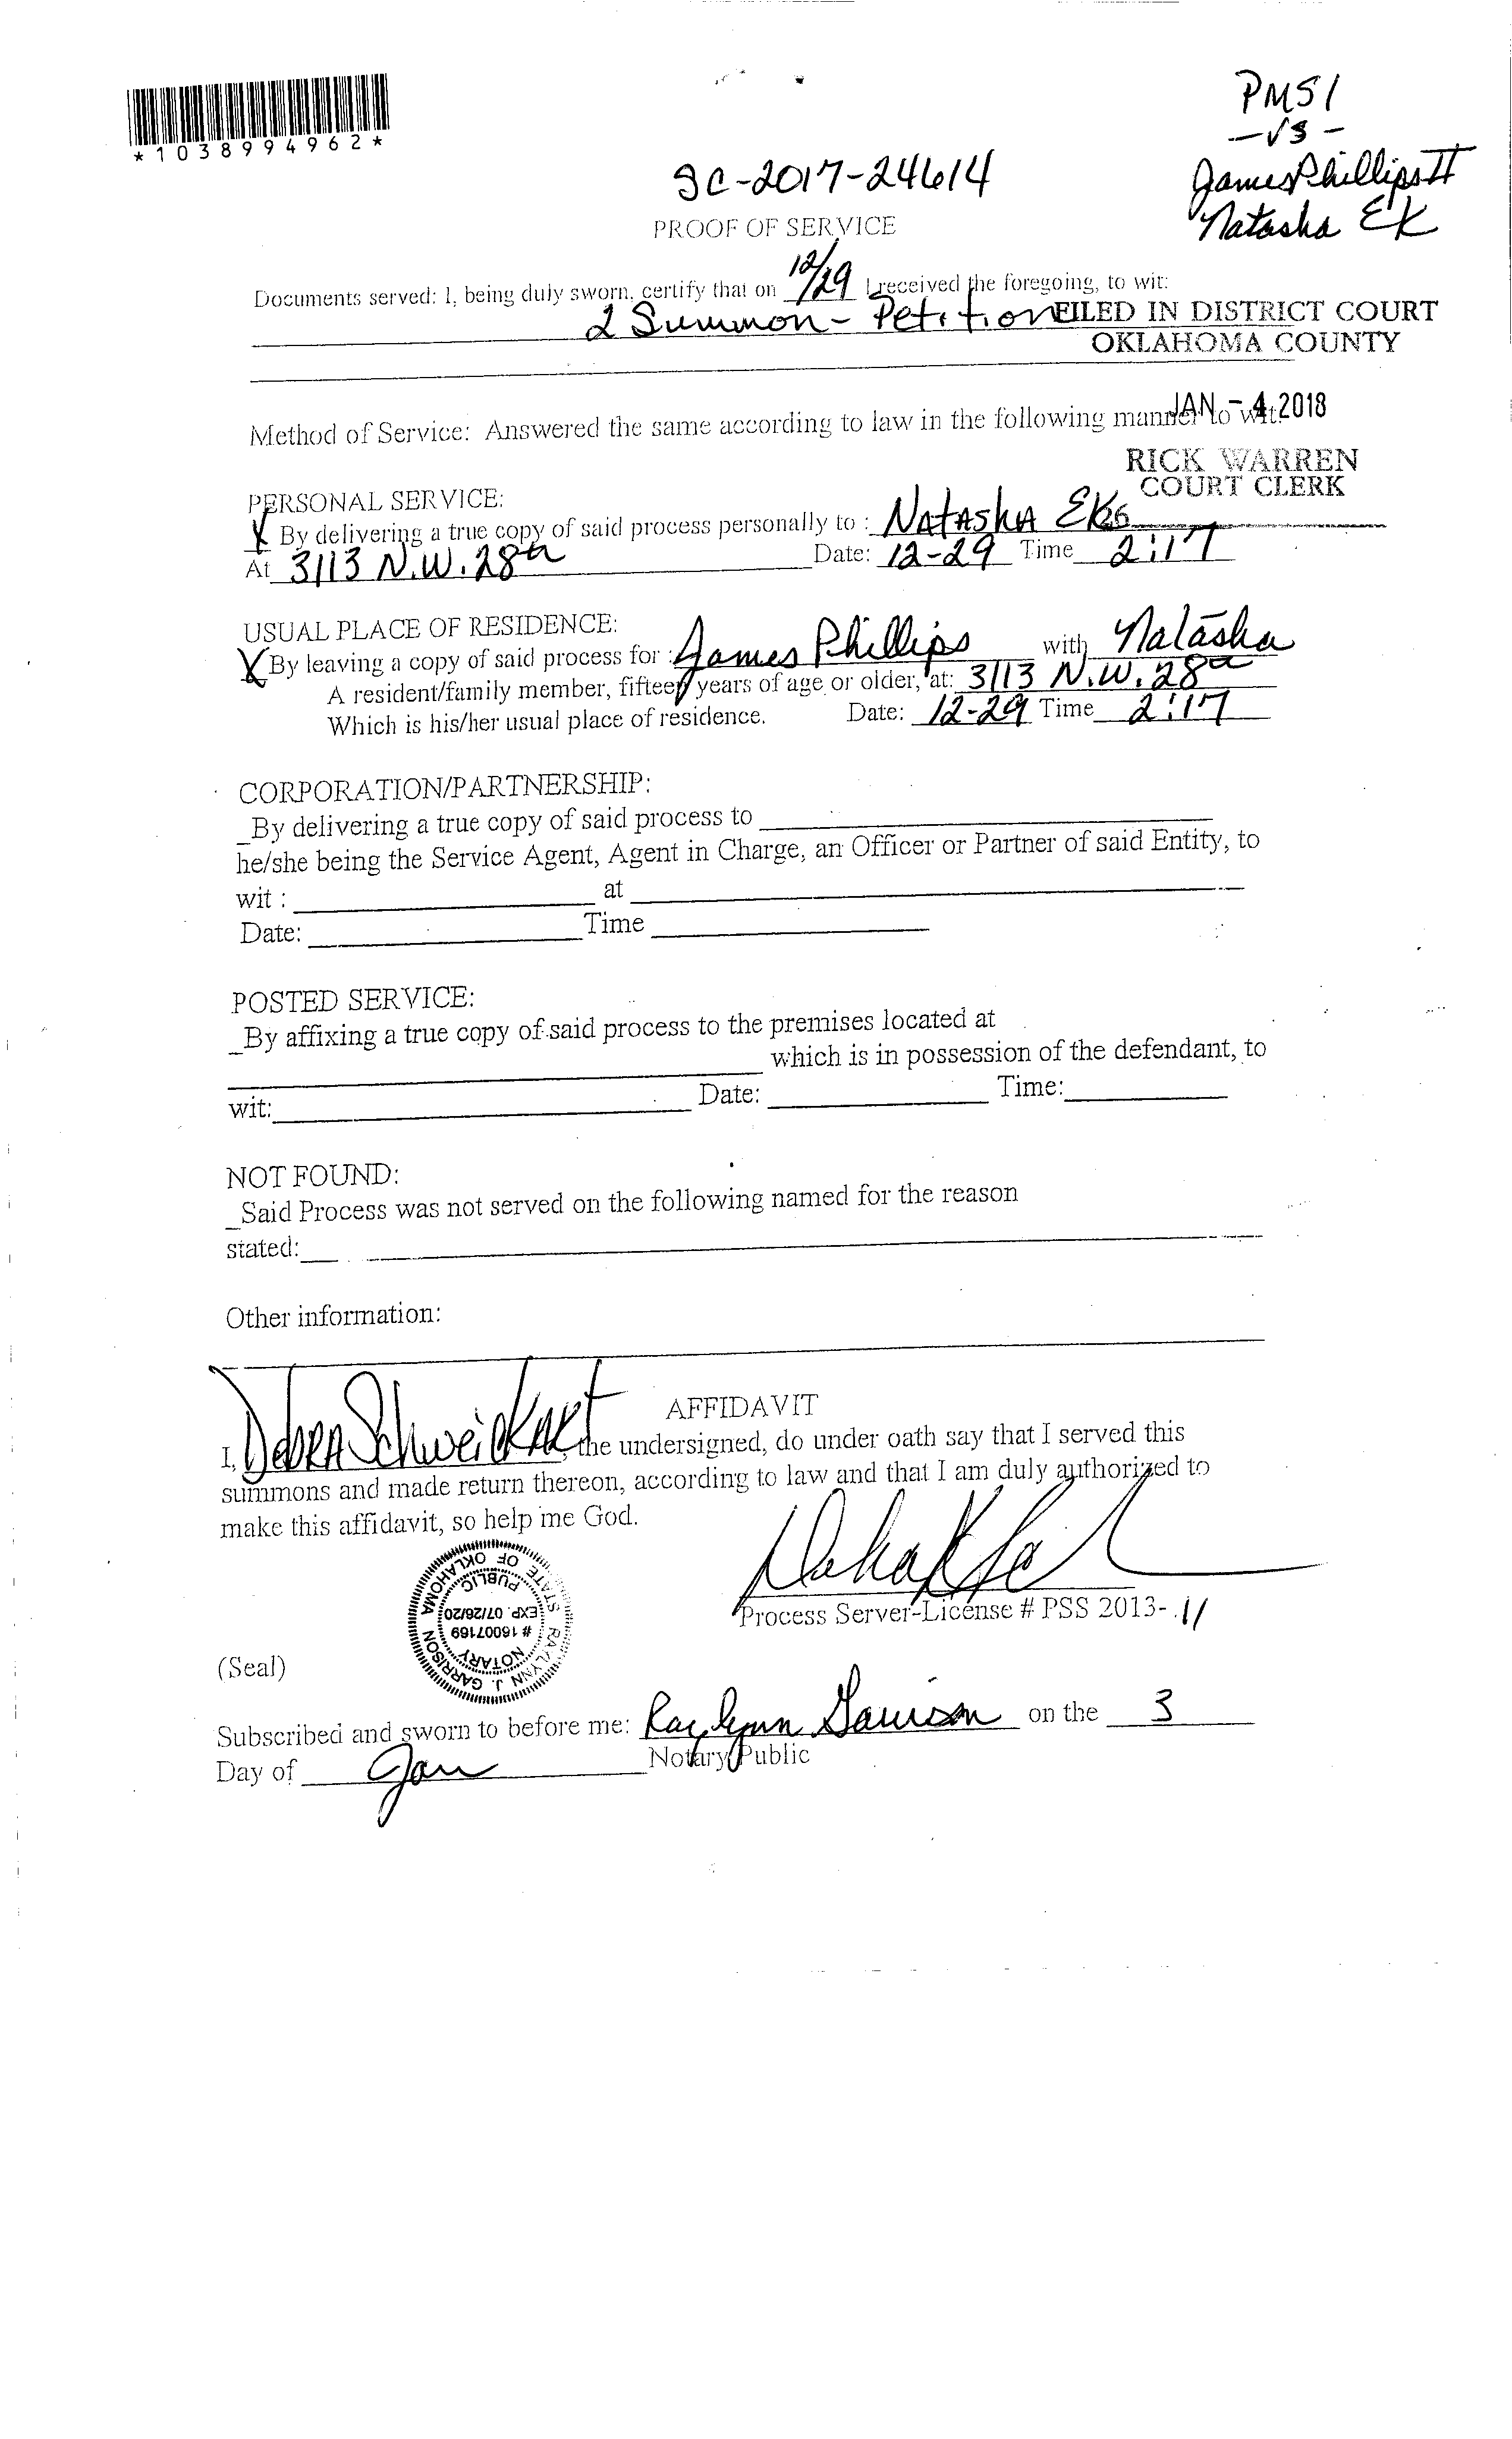 *1038994962*
PMSI
-VS-
James Phillips II
Natasha EK
SC-2017-24614
PROOF OF SERVICE
Documents served: I, being duly sworn, certify that on 12/29 I received the foregoing, to wit:
2 Summon - Petition
FILED IN DISTRICT COURT
OKLAHOMA COUNTY
Method of Service: Answered the same according to law in the following manner to wit:
JAN - 4 2018
RICK WARREN
COURT CLERK
PERSONAL SERVICE:
X By delivering a true copy of said process personally to : Natasha
At 3113 N.W. 28th Date: 12-29 Time 2:17
USUAL PLACE OF RESIDENCE:
X By leaving a copy of said process for : James Phillips with Natasha
A resident/family member, fifteen years of age or older, at: 3113 N.W. 28th
Which is his/her usual place of residence. Date: 12-29 Time 2:17
CORPORATION/PARTNERSHIP:
_By delivering a true copy of said process to
he/she being the Service Agent, Agent in Charge, an Officer or Partner of said Entity, to
wit : at
Date: Time
POSTED SERVICE:
_By affixing a true copy of said process to the premises located at
which is in possession of the defendant, to
wit: Date: Time:
NOT FOUND:
_Said Process was not served on the following named for the reason
stated:
Other information:
AFFIDAVIT
I, Debra Schweickart the undersigned, do under oath say that I served this
summons and made return thereon, according to law and that I am duly authorized to
make this affidavit, so help me God.
Process Server-License # PSS 2013- 11
RAYLYNN J. GARRISON
NOTARY
# 16007169
EXP. 07/26/20
PUBLIC
STATE OF OKLAHOMA
(Seal)
Subscribed and sworn to before me: Raylynn Garrison on the 3
Notary Public
Day of Jan